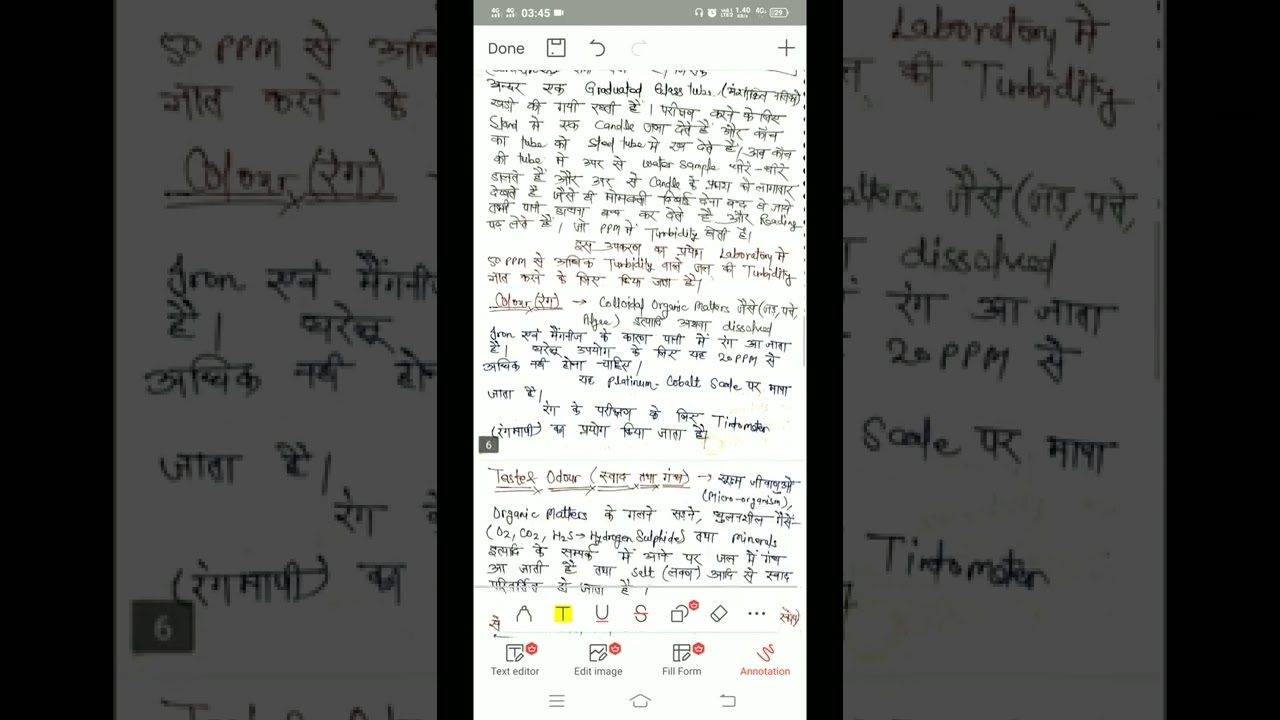 03:45
Done
अन्दर एक Graduated Glass tube (अंशांकित नलिका)
खड़ी की गयी रहती है। परीक्षण करने के लिए
Stand में एक Candle जला देते हैं और काँच
का tube को Steel tube में रख देते हैं। अब काँच
की tube में ऊपर से water sample धीरे-धीरे
डालते हैं और ऊपर से Candle के प्रकाश को लगातार
देखते हैं जैसे ही मोमबत्ती दिखाई देना बन्द हो जाये
तभी पानी डालना बन्द कर देते हैं और Reading
पढ़ लेते हैं। जो PPM में Turbidity होती है।
इस उपकरण का प्रयोग Laboratory में
50 PPM से अधिक Turbidity वाले जल की Turbidity
ज्ञात करने के लिए किया जाता है।
Colour (रंग) → Colloidal Organic Matters जैसे (जड़, पत्ते,
Algee) इत्यादि अथवा dissolved
Iron एवं मैंगनीज के कारण पानी में रंग आ जाता
है। घरेलू उपयोग के लिए यह 20 PPM से
अधिक नहीं होना चाहिए।
यह Platinum-Cobalt Scale पर मापा
जाता है।
रंग के परीक्षण के लिए Tintometer
(रंगमापी) का प्रयोग किया जाता है।
6
Taste & Odour (स्वाद तथा गंध) → सूक्ष्म जीवाणुओं
(Micro-organism),
Organic Matters के गलने सड़ने, घुलनशील गैसें-
(O2, CO2, H2S → Hydrogen Sulphide) तथा minerals
इत्यादि के सम्पर्क में आने पर जल में गंध
आ जाती है तथा Salt (लवण) आदि से स्वाद
परिवर्तित हो जाता है।
से
Text editor
Edit image
Fill Form
Annotation